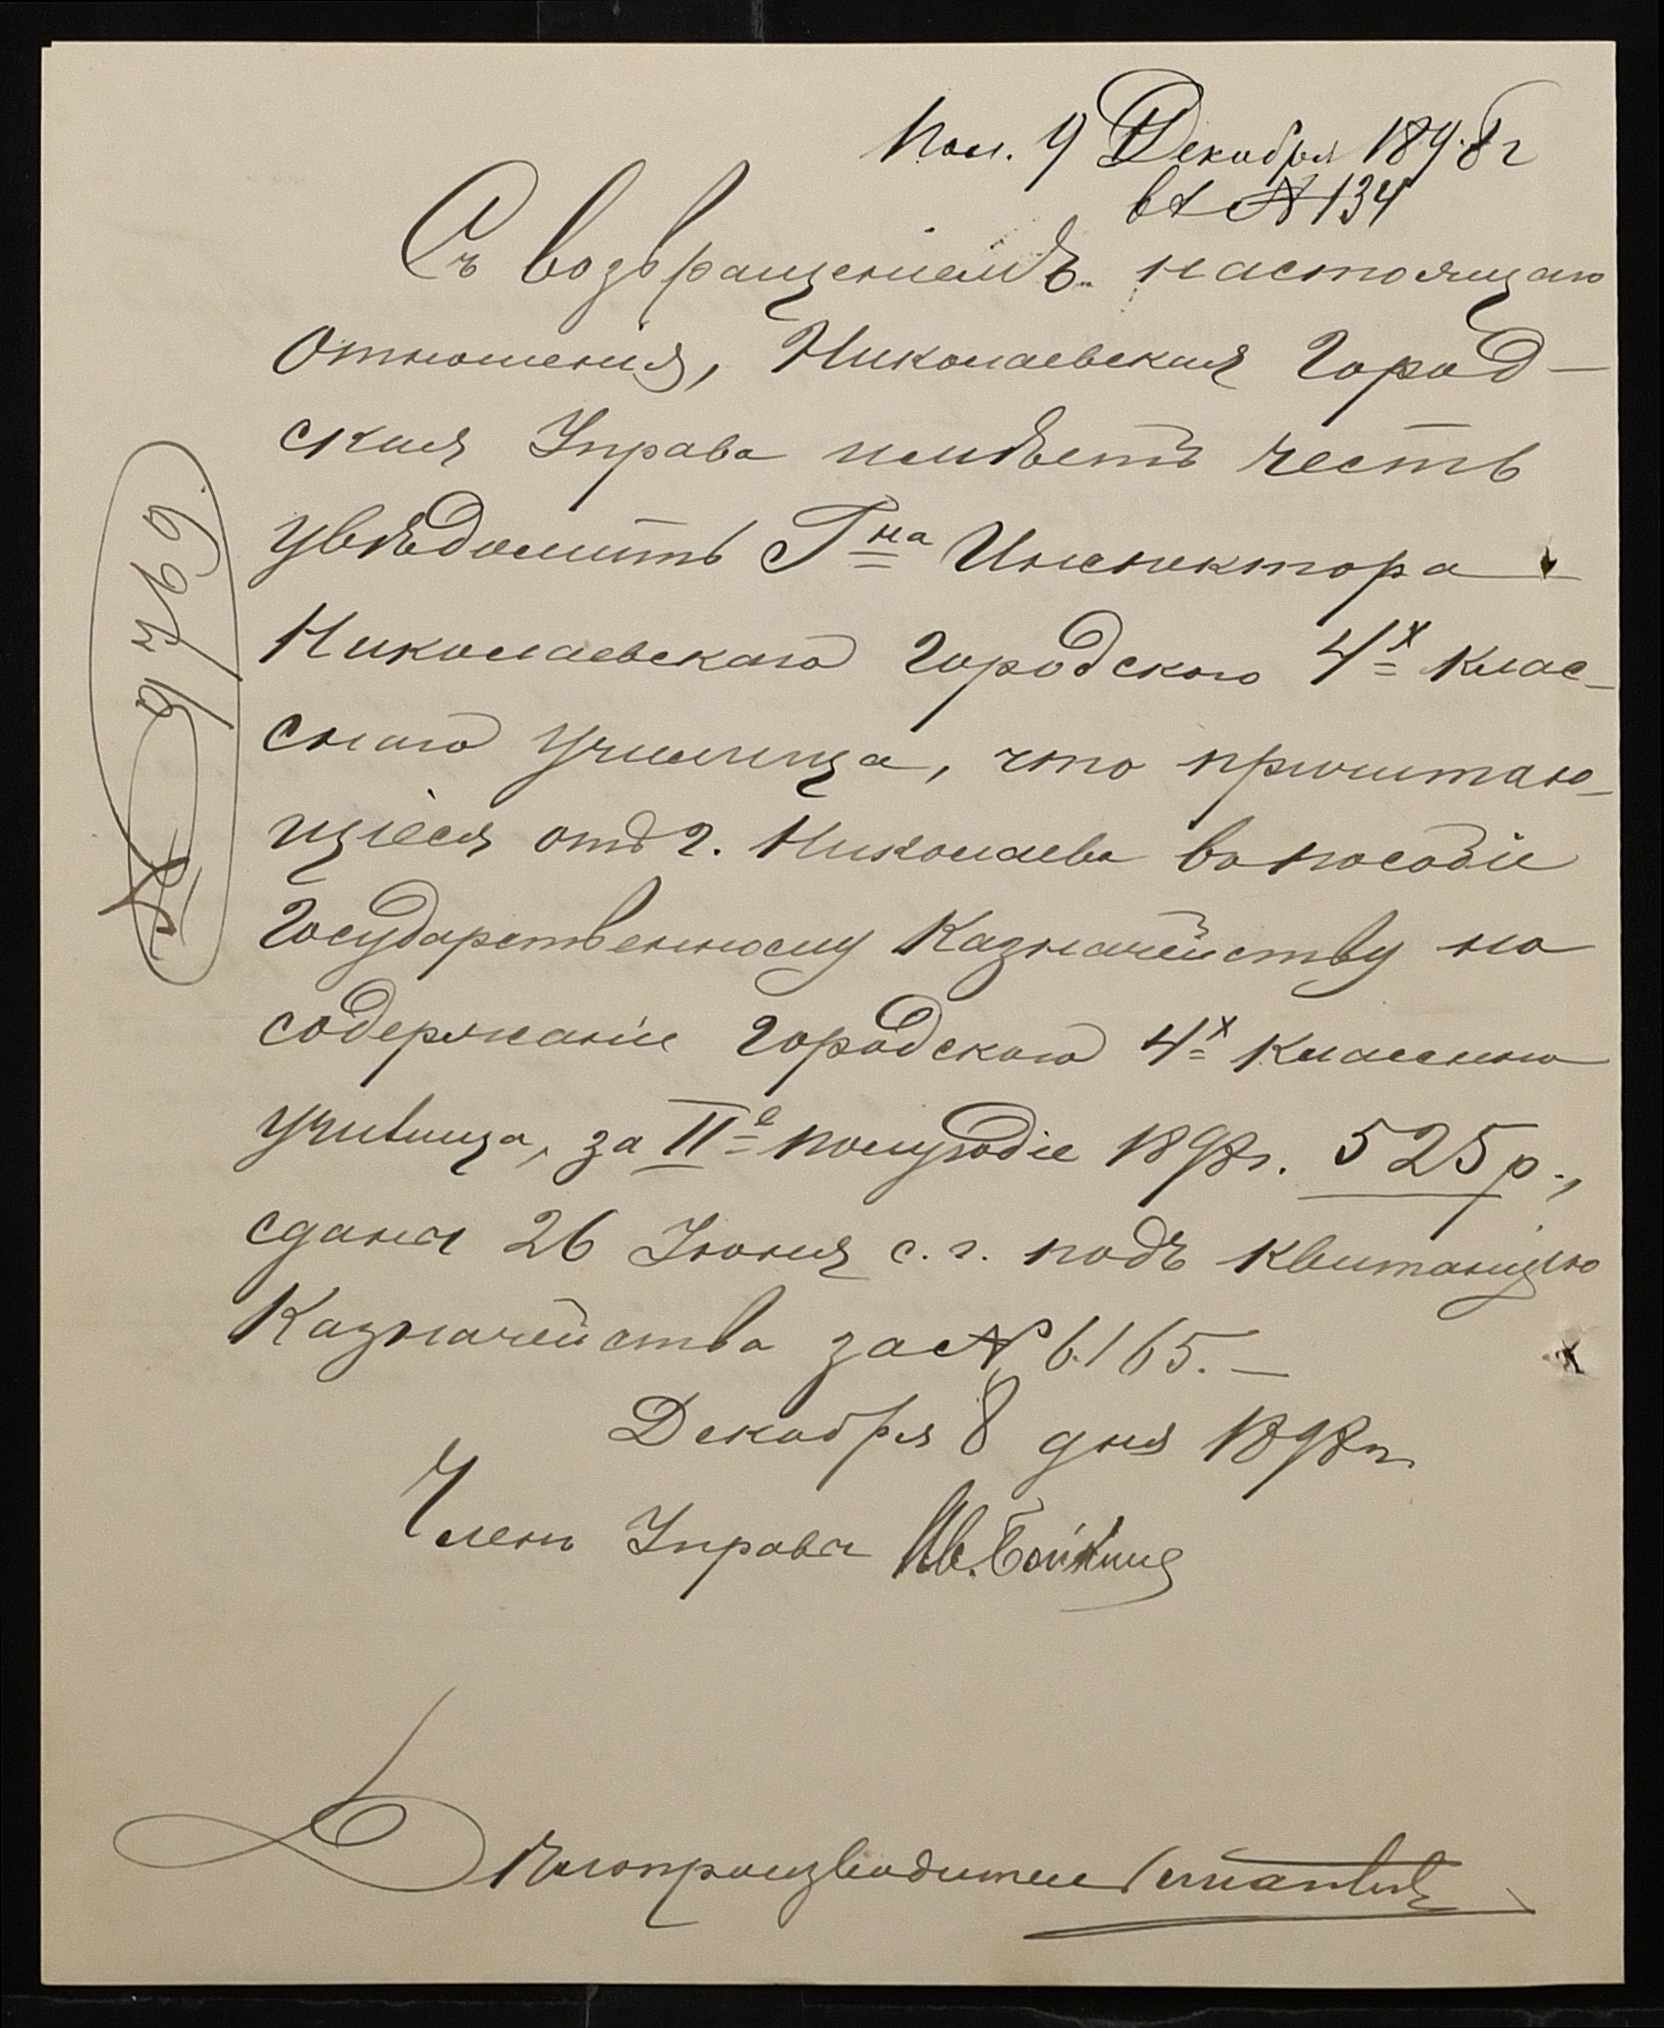 Пол. 9 Декабря 1898 г
вх № 134
Съ возвращеніемъ настоящаго
отношенія, Николаевская Город-
ская Управа имѣетъ честь
увѣдомить Гна Инспектора
Николаевскаго Городского 4х клас-
снаго училища, что причитаю-
щіеся отъ г. Николаева въ пособіе
Государственному Казначейству на
содержаніе Городского 4х класснаго
училища, за IIе полугодіе 1898 г. 525 р.,
сданы 26 Іюня с. г. подъ квитанцію
Казначейства за № 6165.—
Декабря 8 дня 1898 г.
Членъ Управы Ив.
Дѣлопроизводитель
№ 9769.